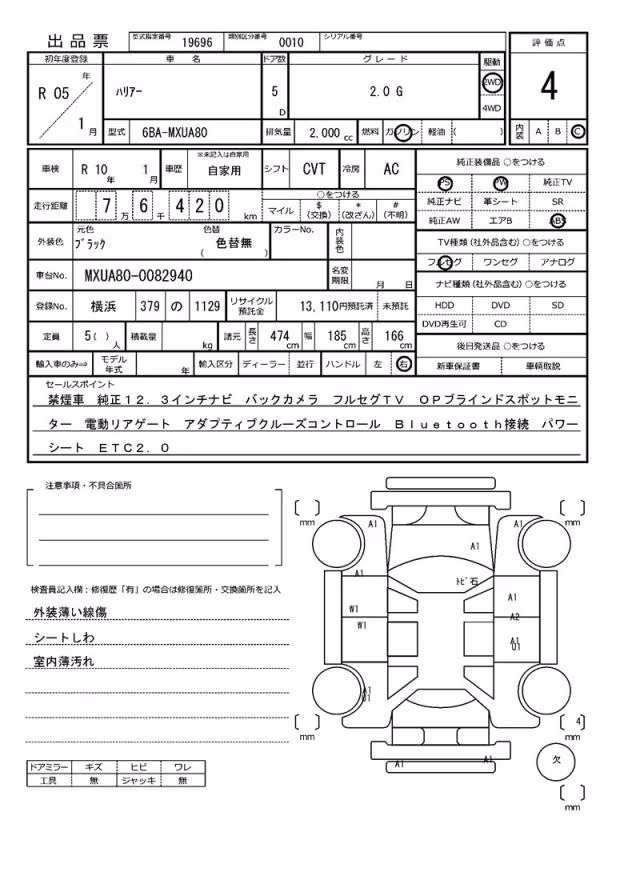 出品票 型式指定番号 19696 類別区分番号 0010 シリアル番号
評価点
4
内装 A B C
初年度登録 車名 ドア数 グレード 駆動
R 05 年 1 月
ハリアー
5 D
2.0 G
2WD
4WD
型式 6BA-MXUA80 排気量 2,000 cc 燃料 ガソリン 軽油 ( )
車検 R 10 年 1 月 車歴 ※未記入は自家用 自家用 シフト CVT 冷房 AC
走行距離 7 万 6 千 4 2 0 km
○をつける
マイル $ (交換) * (改ざん) # (不明)
外装色 元色 ブラック 色替 ( 色替無 ) カラーNo. 内装色
車台No. MXUA80-0082940 名変期限 月 日
登録No. 横浜 379 の 1129 リサイクル預託金 13,110円預託済 未預託
定員 5( ) 人 積載量 kg 諸元 長さ 474 cm 幅 185 cm 高さ 166 cm
輸入車のみ⇒ モデル年式 年 輸入区分 ディーラー 並行 ハンドル 左 右
純正装備品 ○をつける
PS PW 純正TV
純正ナビ 革シート SR
純正AW エアB ABS
TV種類 (社外品含む) ○をつける
フルセグ ワンセグ アナログ
ナビ種類 (社外品含む) ○をつける
HDD DVD SD
DVD再生可 CD
後日発送品 ○をつける
新車保証書 車輌取説
セールスポイント
禁煙車 純正12.3インチナビ バックカメラ フルセグTV OPブラインドスポットモニ
ター 電動リアゲート アダプティブクルーズコントロール Bluetooth接続 パワー
シート ETC2.0
注意事項・不具合箇所
検査員記入欄：修復歴「有」の場合は修復箇所・交換箇所を記入
外装薄い線傷
シートしわ
室内薄汚れ
ドアミラー キズ ヒビ ワレ
工具 無 ジャッキ 無
mm
mm
A1
A1
A1
A1
トビ石
W1
A1
A2
W1
A1
U1
A1
U1
mm
4
mm
A1
A1
欠
mm